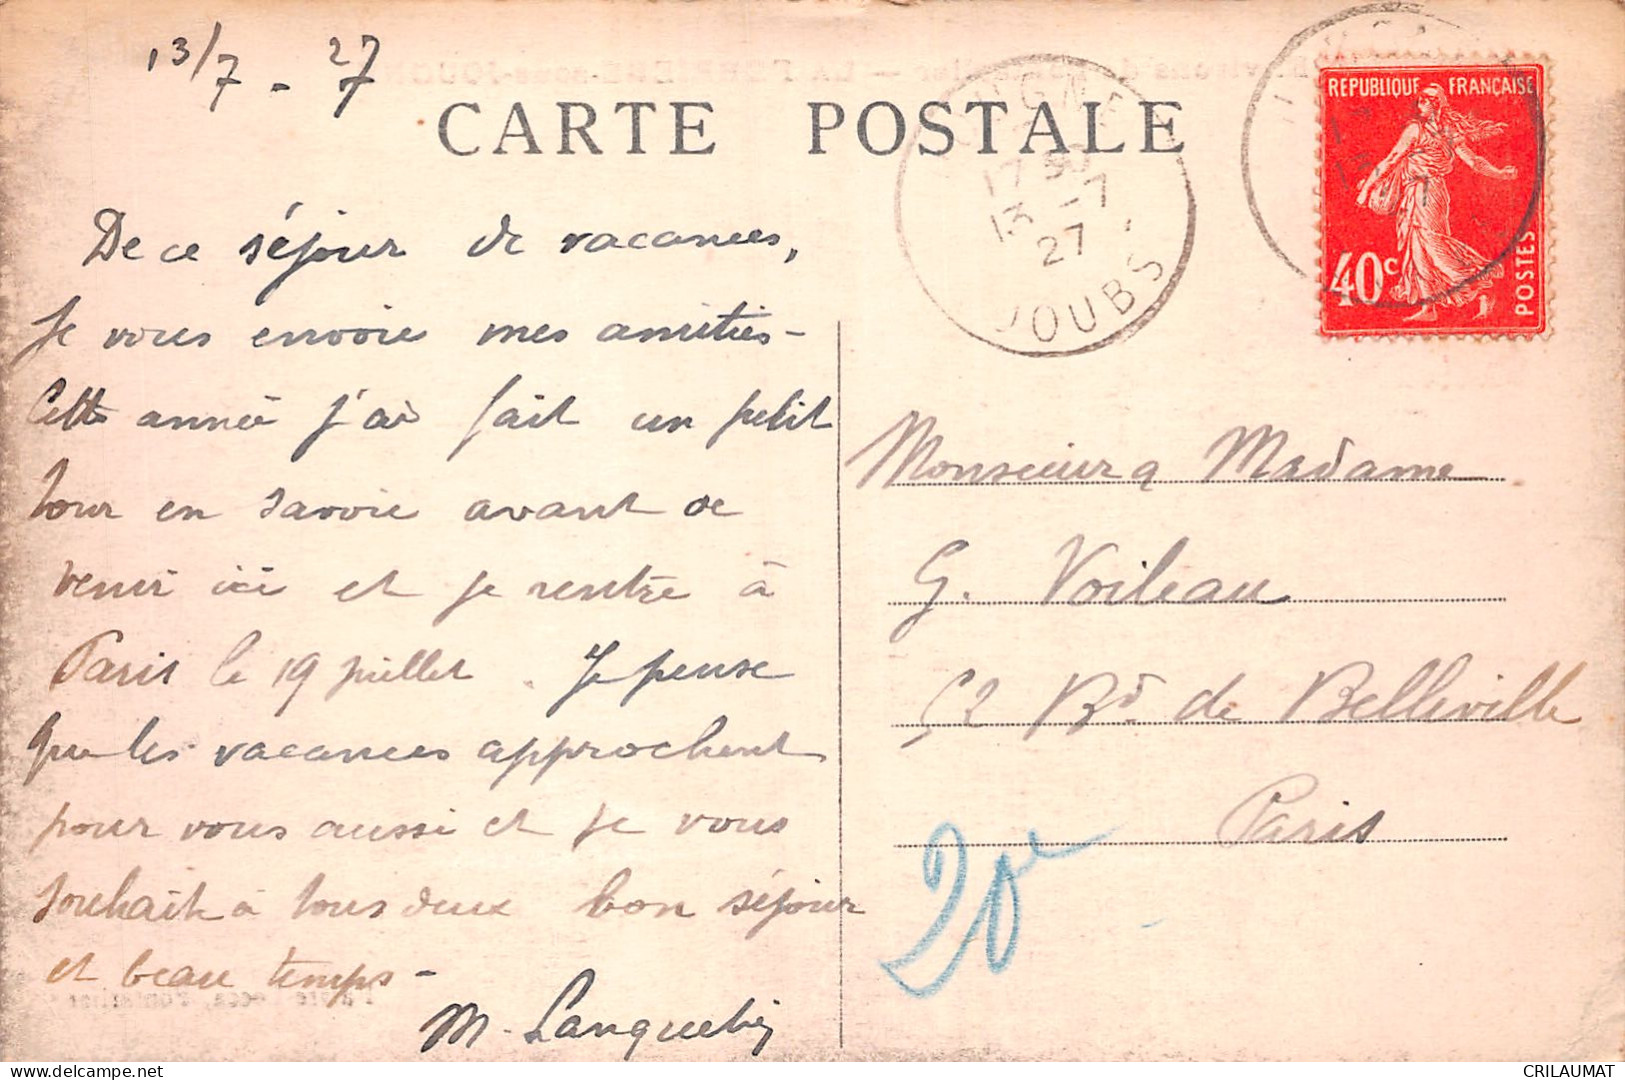 13/7 - 27
CARTE POSTALE
De ce séjour de vacances,
Je vous envoie mes amitiés -
Cette année j'ai fait un petit
tour en Savoie avant de
venir ici et je rentre à
Paris le 19 juillet. Je pense
que les vacances approchent
pour vous aussi et je vous
souhaite à tous deux bon séjour
et beau temps -
M.
JOUGNE
17 30
13 - 7
27
DOUBS
REPUBLIQUE FRANÇAISE
40c
POSTES
Monsieur & Madame
G. Voileau
52 Bd. de Belleville
Paris
20
delcampe.net
CRILAUMAT